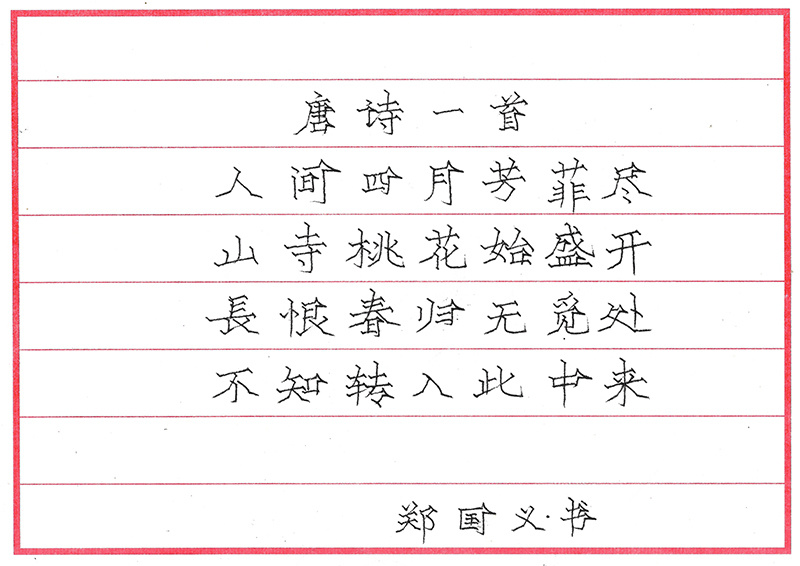 唐诗一首
人间四月芳菲尽
山寺桃花始盛开
長恨春归无觅处
不知转入此中来
郑国义·书